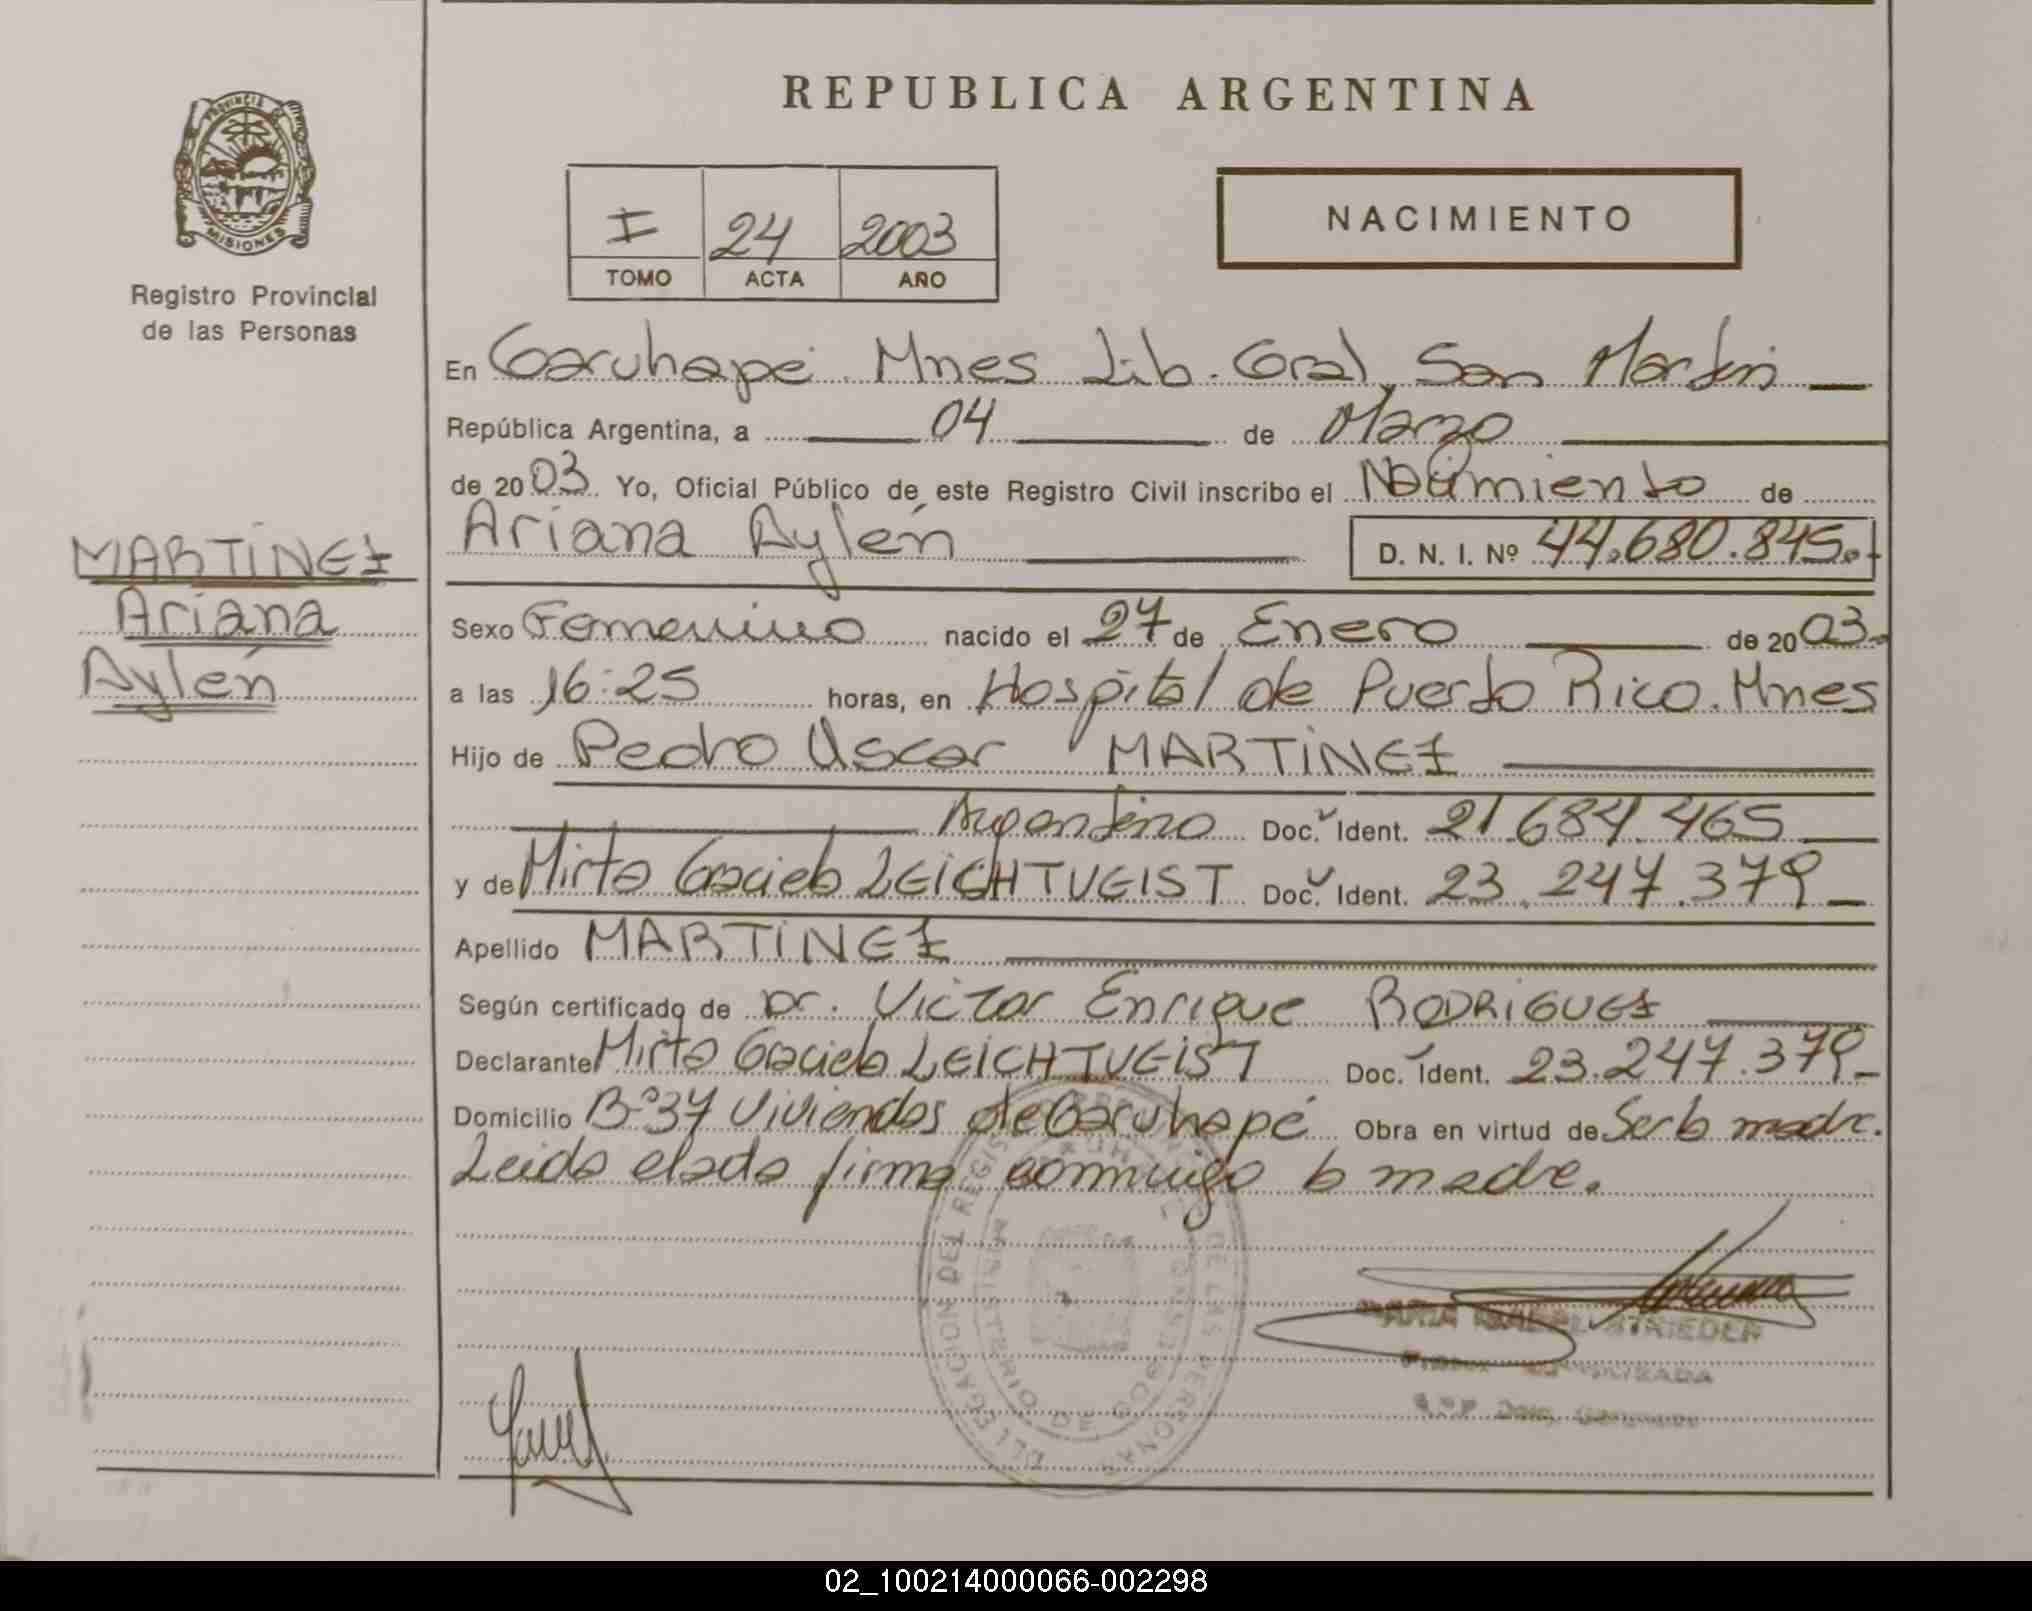 REPUBLICA ARGENTINA
PROVINCIA DE MISIONES
Registro Provincial
de las Personas
I 24 2003
TOMO ACTA AÑO
NACIMIENTO
En Garuhapé Mnes Lib. Gral. San Martín
República Argentina, a 04 de Marzo
de 2003. Yo, Oficial Público de este Registro Civil inscribo el Nacimiento de
Ariana Aylén D. N. I. Nº 44.680.845.
MARTINEZ
Ariana
Aylén
Sexo Femenino nacido el 27 de Enero de 2003.
a las 16:25 horas, en Hospital de Puerto Rico. Mnes
Hijo de Pedro Oscar MARTINEZ
Argentino Doc. Ident. 21.684.465
y de Mirta Graciela LEICHTVEIST Doc. Ident. 23.247.379
Apellido MARTINEZ
Según certificado de Dr. Victor Enrique RODRIGUEZ
Declarante Mirta Graciela LEICHTVEIST Doc. Ident. 23.247.379
Domicilio B-º37 Viviendas de Garuhapé Obra en virtud de Ser la madre.
Leida el acta firma conmigo la madre.
DELEGACION DEL REGISTRO DE LAS PERSONAS
MINISTERIO DE GOBIERNO
MARIA STRIEDER
02_100214000066-002298